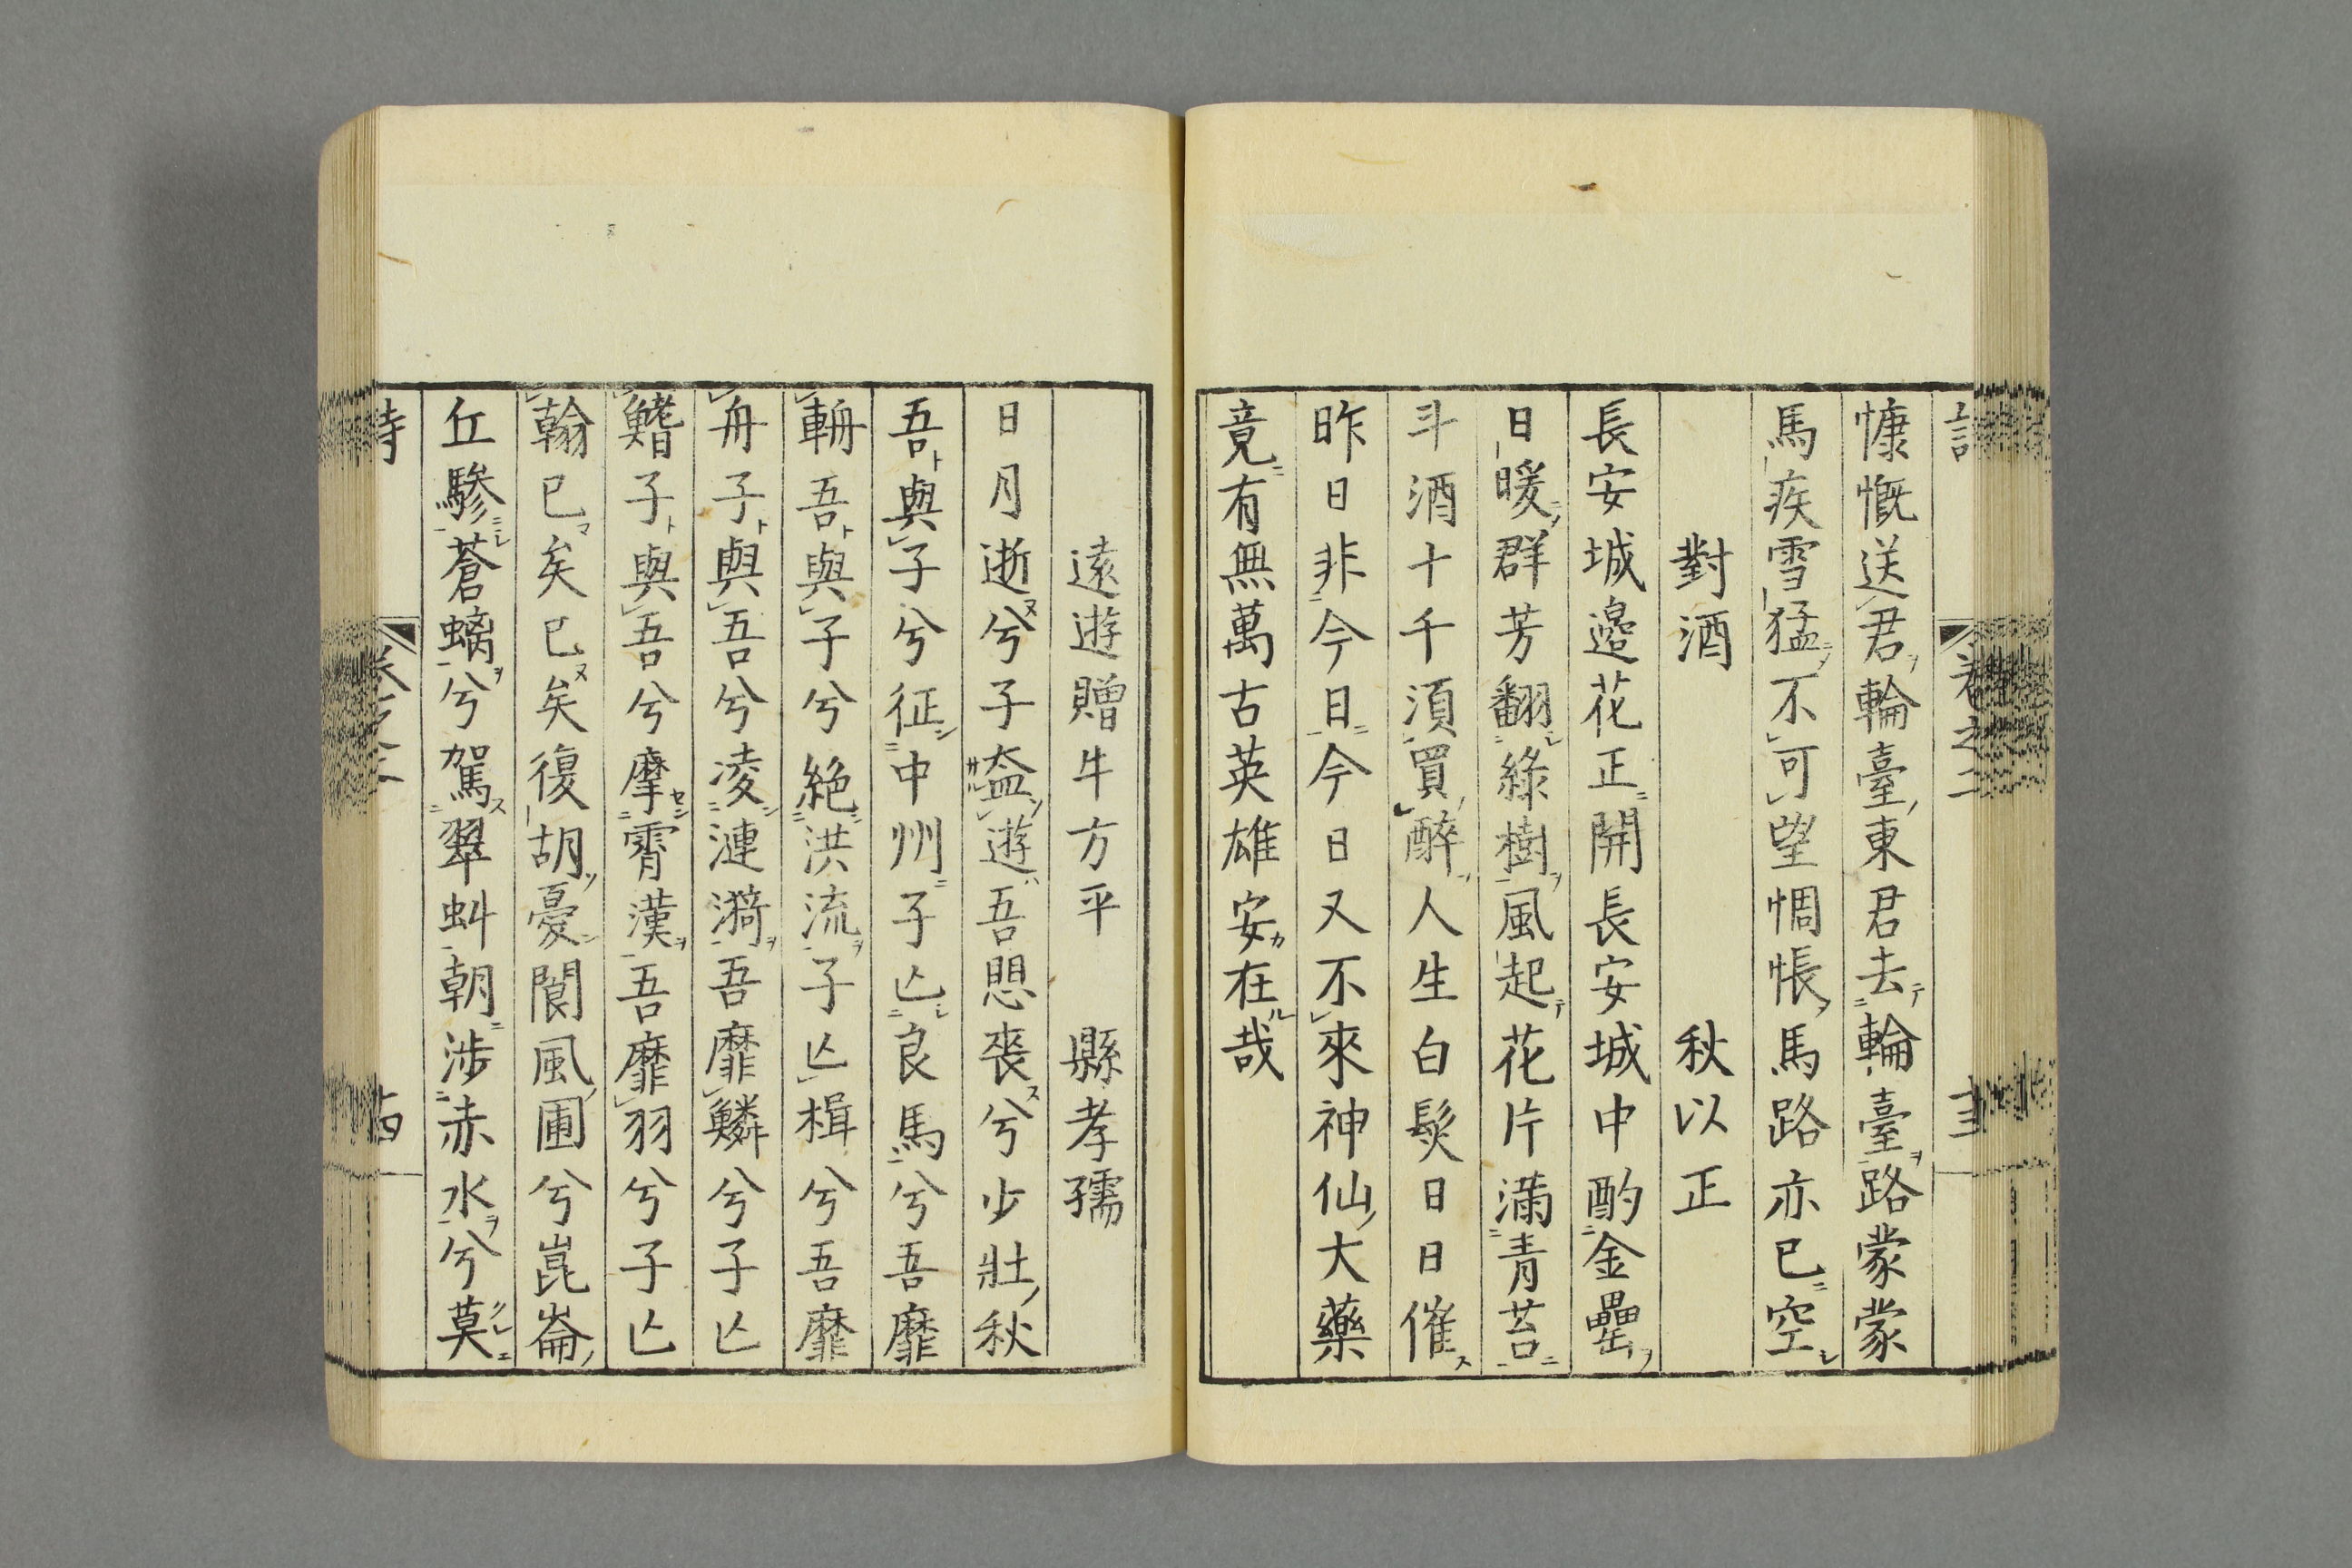 慷慨送君輪臺東君去輪臺路蒙蒙
馬疾雪猛不可望惆悵馬路亦已空
對酒 秋以正
長安城邉花正開長安城中酌金罍
日暖群芳翻綠樹風起花片滿青苔
斗酒十千須買醉人生白髮日日催
昨日非今日今日又不來神仙大藥
竟有無萬古英雄安在哉
卷之二
遠遊贈牛方平 縣孝孺
日月逝兮子盍遊吾愳喪兮少壯秋
吾與子兮征中州子亾良馬兮吾靡
輈吾與子兮絶洪流子亾楫兮吾靡
舟子與吾兮凌漣漪吾靡鱗兮子亾
鰭子與吾兮摩霄漢吾靡羽兮子亾
翰已矣已矣復胡憂閬風圃兮崑崙
丘驂蒼螭兮駕翠虯朝涉赤水兮莫